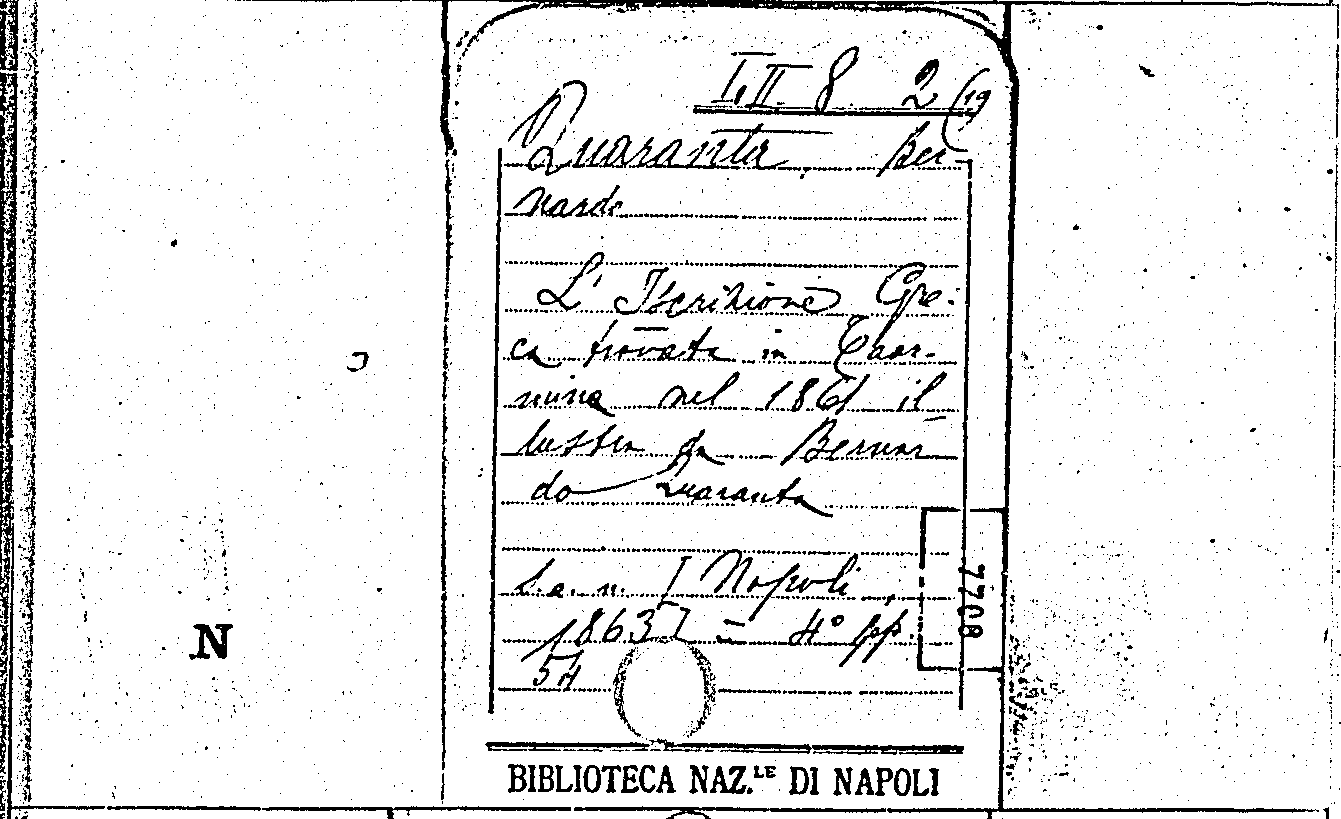 I.II 8 2 (19
Quaranta, Ber-
nardo
L'Iscrizione Gre-
ca trovata in Taor-
mina nel 1861 il-
lustra da Bernar
do Quaranta
S.a.n. [Napoli,
1863] = 4° pp.
54
7708
N
BIBLIOTECA NAZ.LE DI NAPOLI